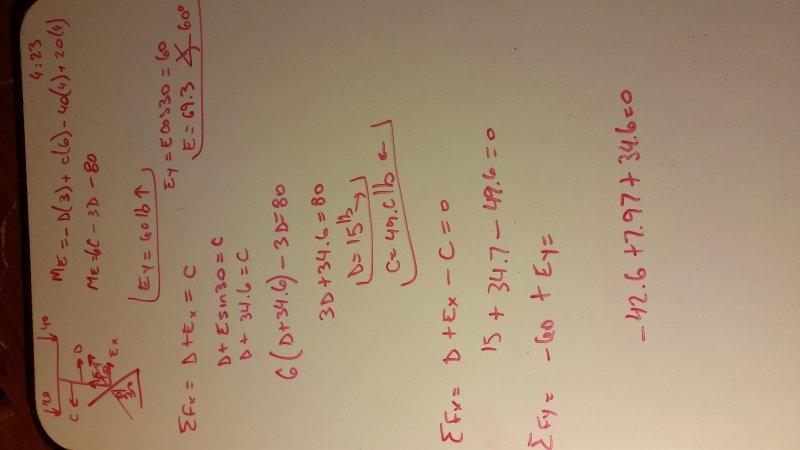 4:23
↓20 ↓40
C ← → D
Ey
Ex
30
ME = -D(3) + C(6) - 40(4) + 20(4)
ME = 6C - 3D - 80
Ey = 60 lb ↑
Ey = E cos 30 = 60
E = 69.3 60°
ΣFx = D + Ex = C
D + E sin 30 = C
D + 34.6 = C
6(D + 34.6) - 3D = 80
3D + 34.6 = 80
D = 15 lb →
C = 49.6 lb ←
ΣFx = D + Ex - C = 0
15 + 34.7 - 49.6 = 0
ΣFy = -60 + Ey =
-42.6 + 7.97 + 34.6 = 0